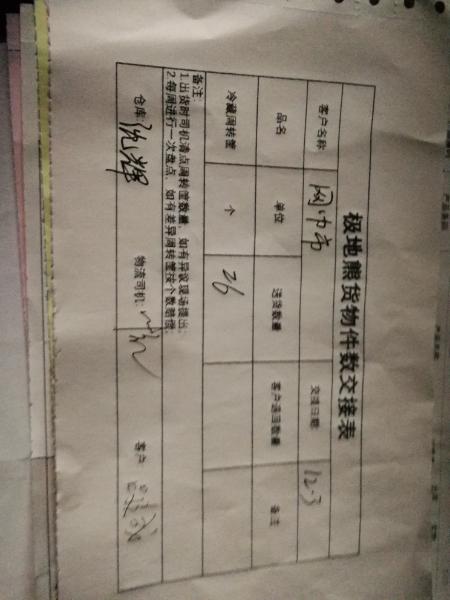 极地熊货物件数交接表
客户名称 交接日期: 12.3
品名 单位 送货数量 客户退回数量 备注
冷藏周转筐 个 26
备注:
1.出货时司机清点周转筐数量,如有异议现场提出;
2.每周进行一次盘点,如有差异周转筐按个数赔偿;
仓库: 物流司机: 客户